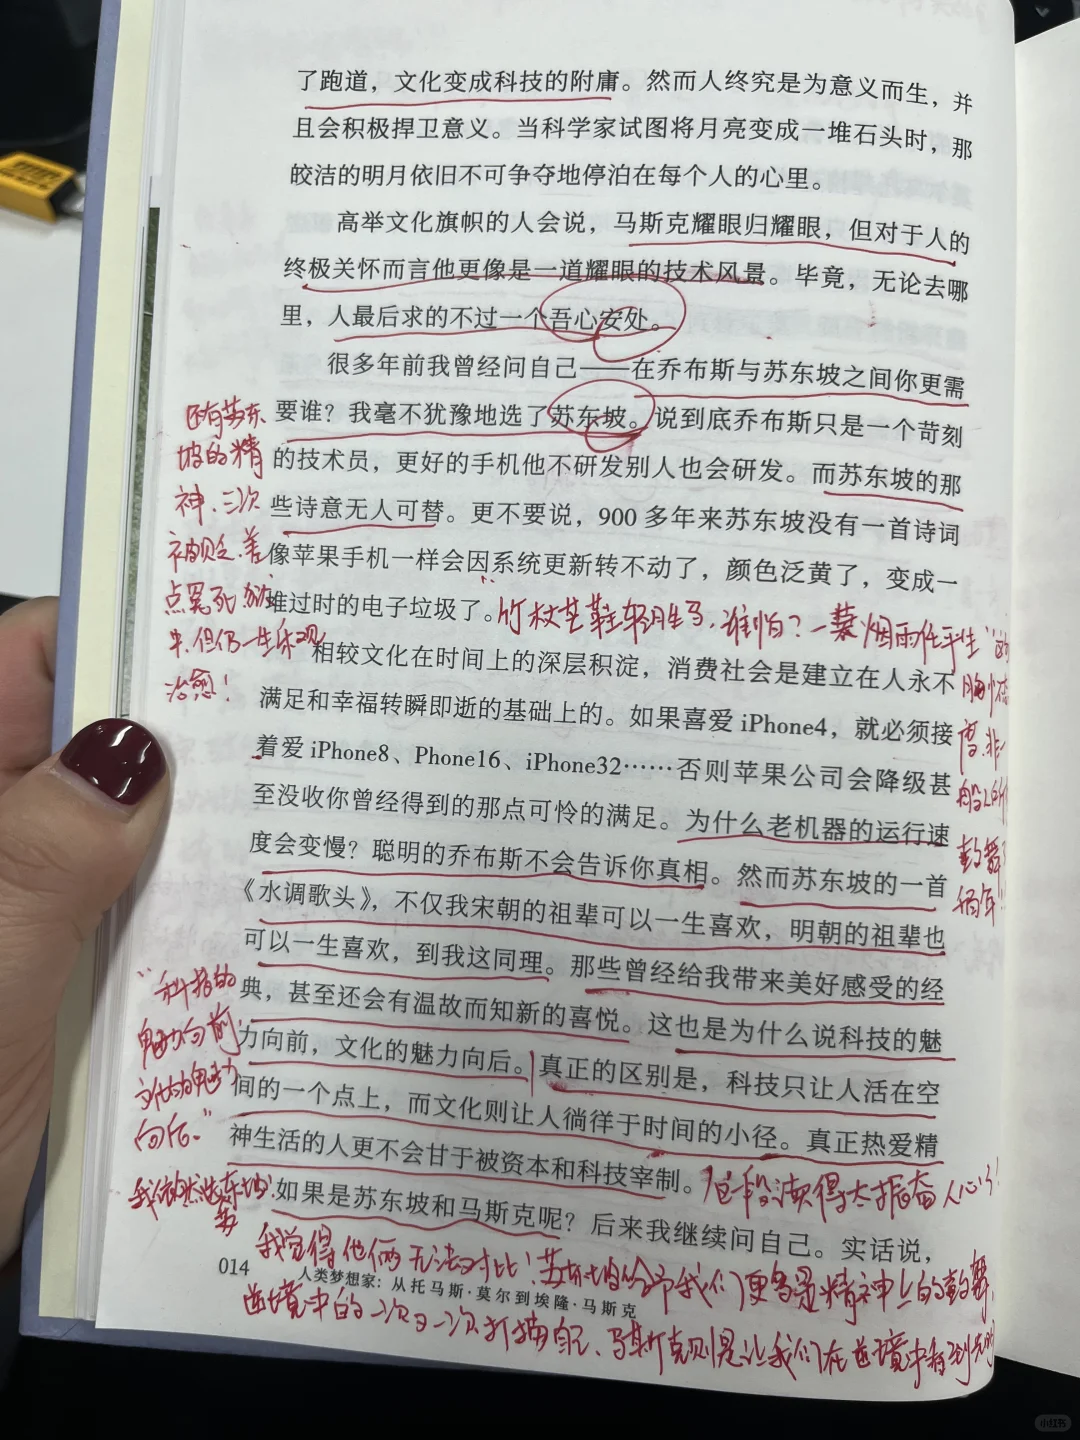 了跑道，文化变成科技的附庸。然而人终究是为意义而生，并
且会积极捍卫意义。当科学家试图将月亮变成一堆石头时，那
皎洁的明月依旧不可争夺地停泊在每个人的心里。
高举文化旗帜的人会说，马斯克耀眼归耀眼，但对于人的
终极关怀而言他更像是一道耀眼的技术风景。毕竟，无论去哪
里，人最后求的不过一个吾心安处。
很多年前我曾经问自己——在乔布斯与苏东坡之间你更需
要谁？我毫不犹豫地选了苏东坡。说到底乔布斯只是一个苛刻
的技术员，更好的手机他不研发别人也会研发。而苏东坡的那
些诗意无人可替。更不要说，900多年来苏东坡没有一首诗词
像苹果手机一样会因系统更新转不动了，颜色泛黄了，变成一
堆过时的电子垃圾了。
相较文化在时间上的深层积淀，消费社会是建立在人永不
满足和幸福转瞬即逝的基础上的。如果喜爱 iPhone4，就必须接
着爱 iPhone8、Phone16、iPhone32……否则苹果公司会降级甚
至没收你曾经得到的那点可怜的满足。为什么老机器的运行速
度会变慢？聪明的乔布斯不会告诉你真相。然而苏东坡的一首
《水调歌头》，不仅我宋朝的祖辈可以一生喜欢，明朝的祖辈也
可以一生喜欢，到我这同理。那些曾经给我带来美好感受的经
典，甚至还会有温故而知新的喜悦。这也是为什么说科技的魅
力向前，文化的魅力向后。真正的区别是，科技只让人活在空
间的一个点上，而文化则让人徜徉于时间的小径。真正热爱精
神生活的人更不会甘于被资本和科技宰制。
如果是苏东坡和马斯克呢？后来我继续问自己。实话说，
014
人类梦想家：从托马斯·莫尔到埃隆·马斯克
还有苏东
坡的精
神、三次
被贬、差
点冤死
但仍一生乐观
治愈！
"竹杖芒鞋轻胜马，谁怕？一蓑烟雨任平生"
"科技的
魅力向前，
文化的魅力
向后。"
这段读得太振奋人心了！
我觉得他俩无法对比！苏东坡给予我们更多是精神上的鼓舞，
逆境中的一次又一次
马斯克则是让我们在逆境中看到光明
小红书